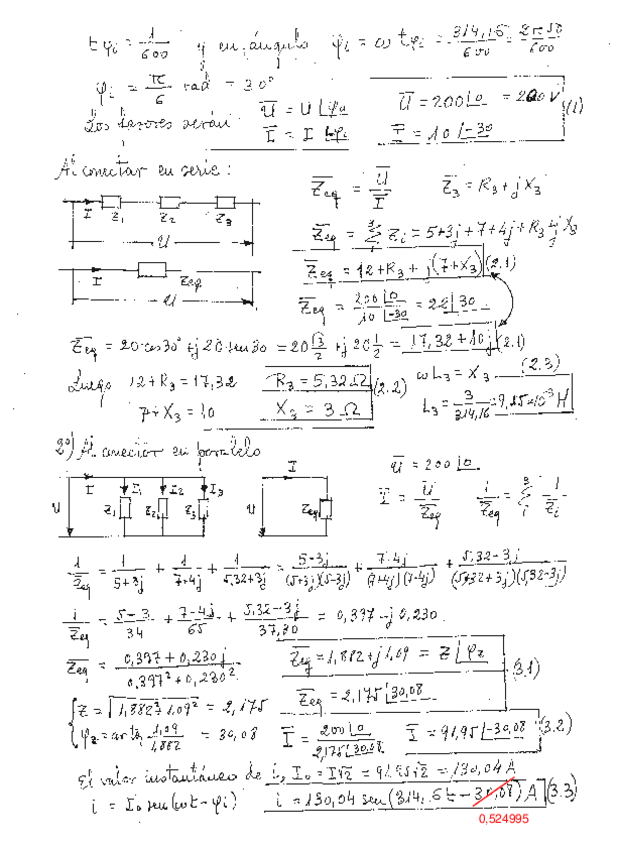 tφi = 1/600 y en ángulo φi = ω tφi = 314,16/600 = 2π50/600
φi = π/6 rad = 30°
Los fasores serán: U̅ = U ⌊φu U̅ = 200⌊0 = 200 V (1)
I̅ = I ⌊-φi I̅ = 10 ⌊-30
Al conectar en serie: Z̅eq = U̅/I̅ Z̅3 = R3 + j X3
I Z1 Z2 Z3
U
Z̅eq = Σ Zi = 5+3j + 7+4j + R3 + j X3
Z̅eq = 12 + R3 + j(7 + X3) (2.1)
I Zeq
U
Z̅eq = 200⌊0 / 10⌊-30 = 20⌊30
Z̅eq = 20 cos 30° + j 20 sen 30 = 20 √3/2 + j 20 1/2 = 17,32 + 10j (2.1)
Luego 12 + R3 = 17,32 R3 = 5,32 Ω (2.2) ωL3 = X3 (2.3)
7 + X3 = 10 X3 = 3 Ω L3 = 3/314,16 = 9,55×10⁻³ H
2º) Al conectar en paralelo
I I1 I2 I3 I
U Z1 Z2 Z3 U Zeq
U̅ = 200⌊0
I̅ = U̅/Z̅eq 1/Z̅eq = Σ 1/Z̅i
1/Z̅eq = 1/(5+3j) + 1/(7+4j) + 1/(5,32+3j) = (5-3j)/((5+3j)(5-3j)) + (7-4j)/((7+4j)(7-4j)) + (5,32-3j)/((5,32+3j)(5,32-3j))
1/Z̅eq = (5-3)/34 + (7-4j)/65 + (5,32-3j)/37,30 = 0,397 - j 0,230
Z̅eq = (0,397 + 0,230j)/(0,397² + 0,230²) Z̅eq = 1,882 + j1,09 = Z⌊φz (3.1)
Z̅eq = 2,175⌊30,08
Z = √(1,882² 1,09²) = 2,175
φz = arc tg 1,09/1,882 = 30,08 I̅ = 200⌊0 / 2,175⌊30,08 I̅ = 91,95⌊-30,08 (3.2)
El valor instantáneo de i, I₀ = I√2 = 91,95√2 = 130,04 A
i = I₀ sen(ωt - φi) i = 130,04 sen(314,16t - 30,08) A (3.3)
0,524995